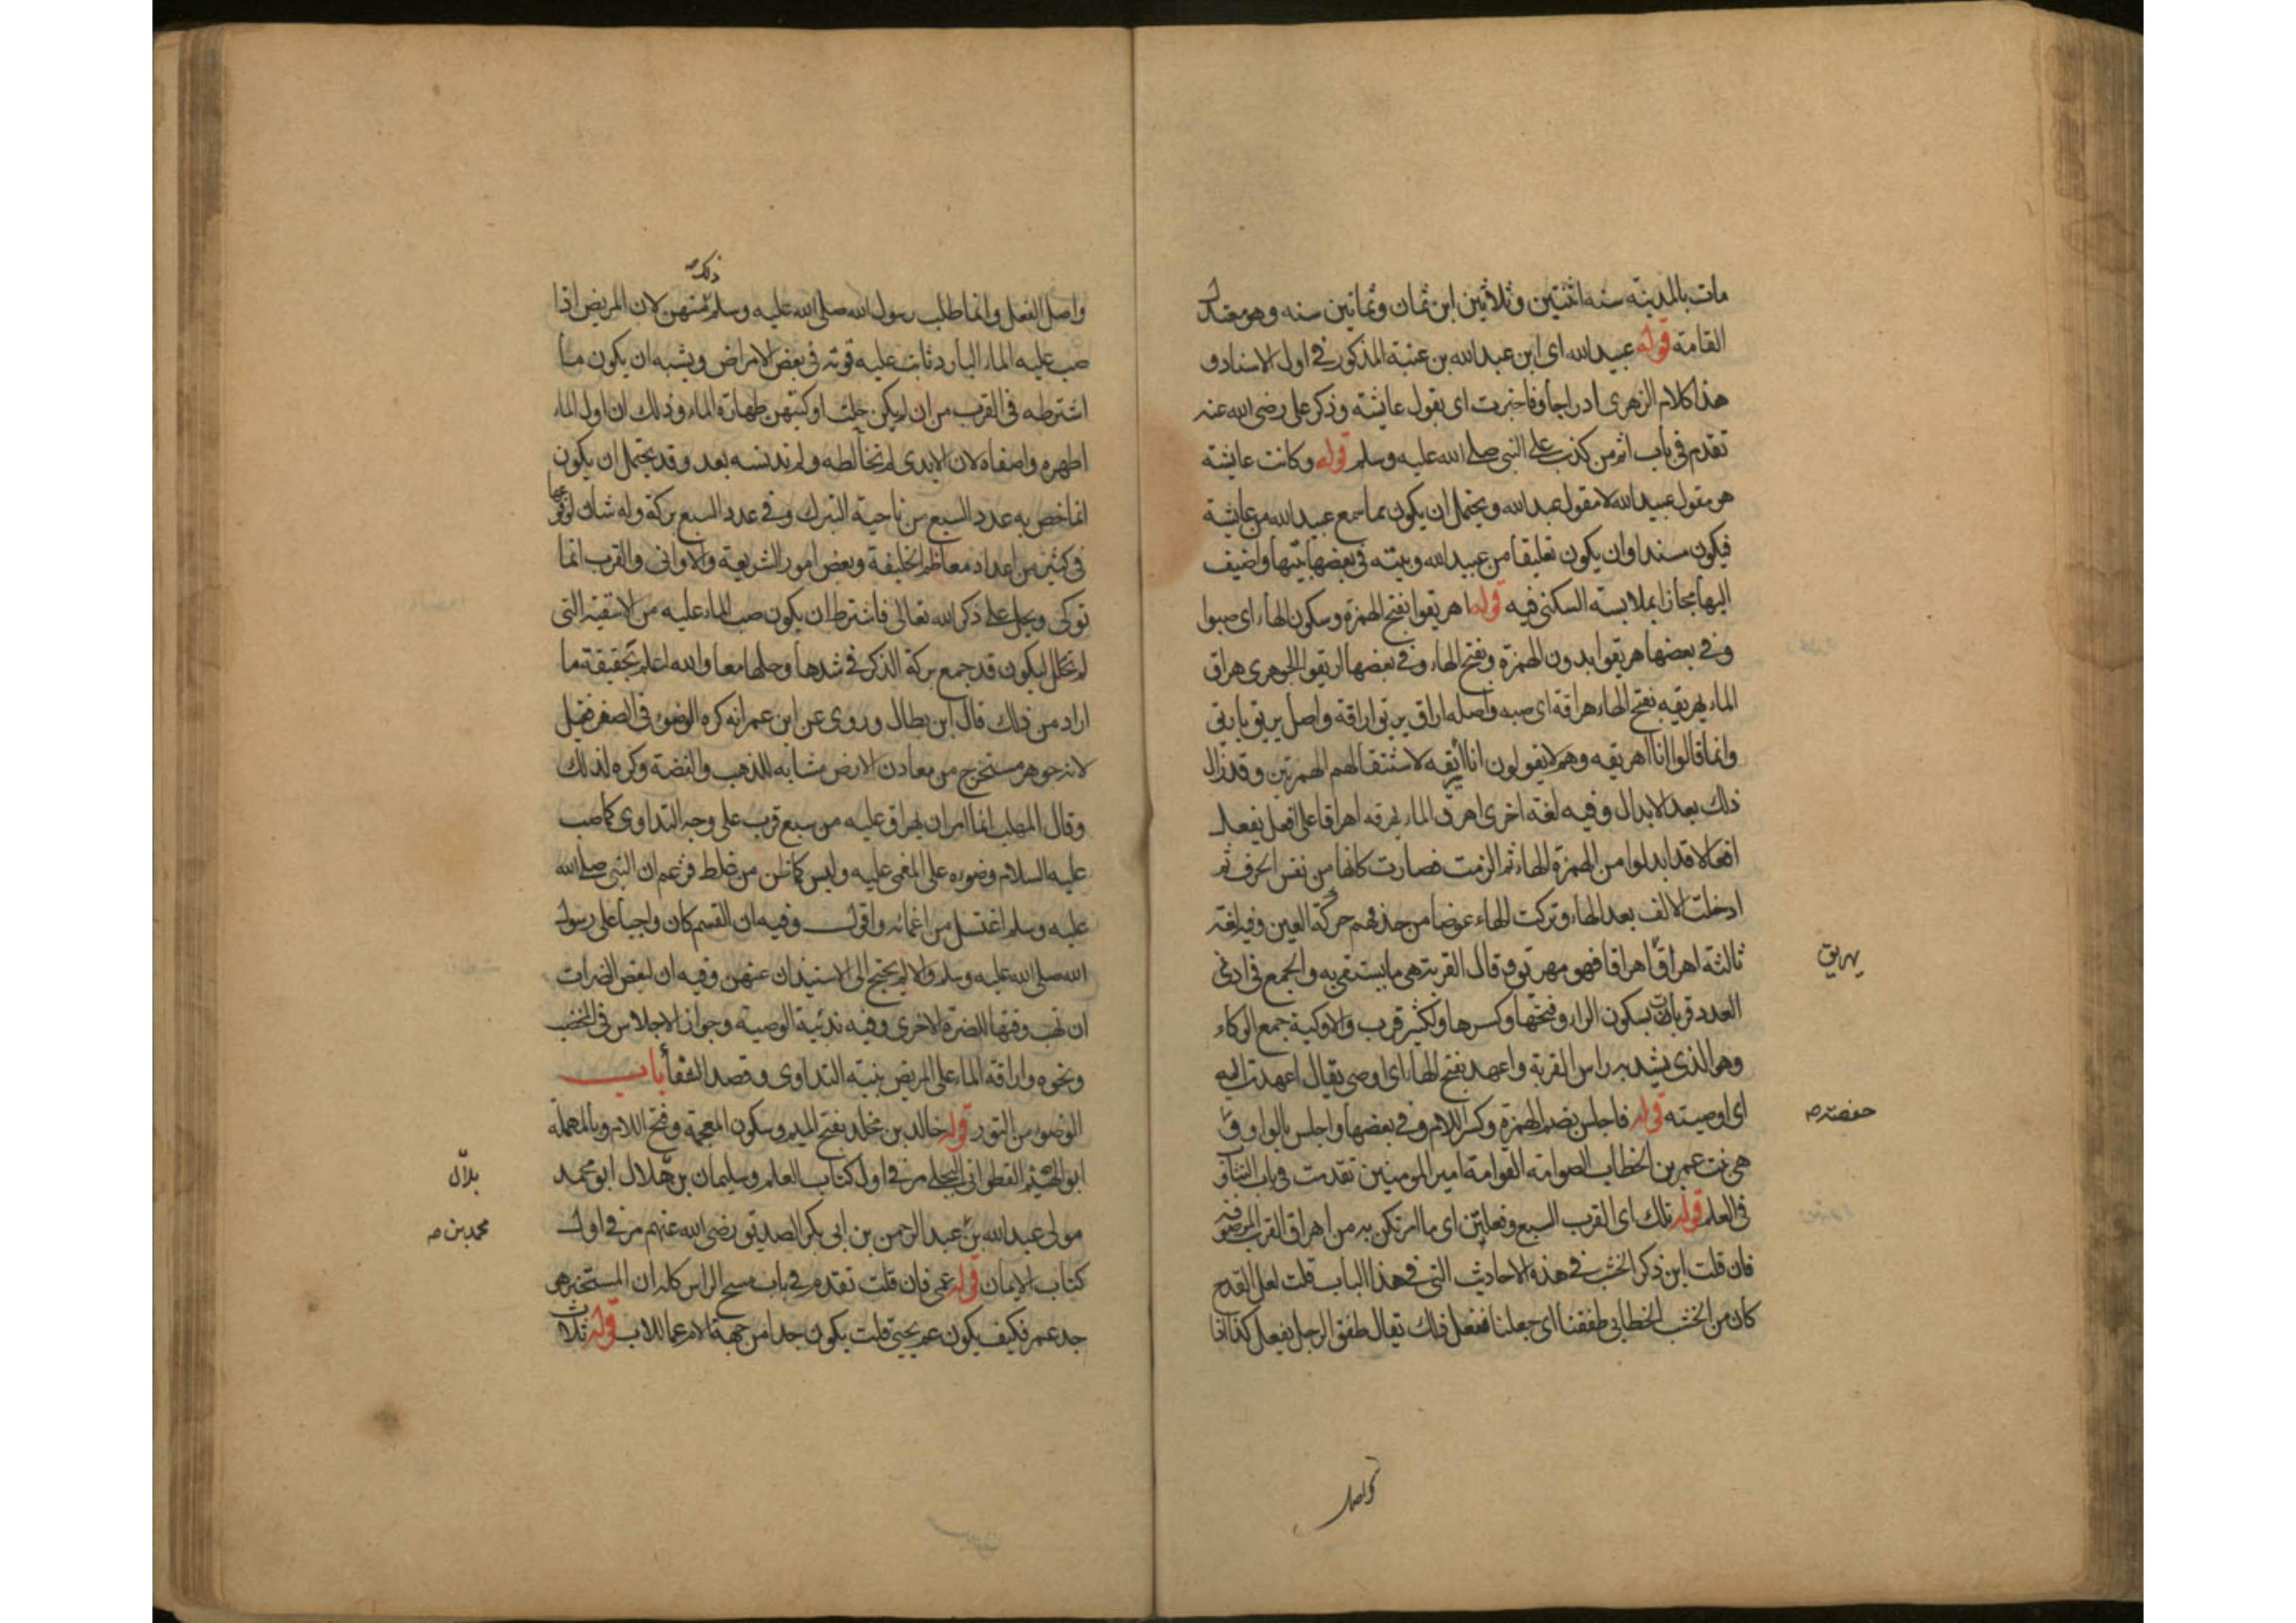 مات بالمدينه سنه اثنتين وثلاثين ابن ثمان وثمانين سنه وهو معتدل
القامة قوله عبيد الله اى ابن عبد الله بن عتبة المذكور فى اول الاسناد و
هذا كلام الزهرى ادراجا وفاخبرت اى بقول عايشة وذكر على رضى الله عنه
تقدم فى باب اثم من كذب على النبى صلى الله عليه وسلم قوله وكانت عايشة
هو مقول عبيد الله لا مقول عبد الله ويحتمل ان يكون مما سمع عبيد الله من عايشة
فيكون مسندا وان يكون تعليقا من عبيد الله وبيته فى بعضها بيتها واضيف
اليها مجازا بملابسته السكنى فيه قوله اهريقوا بفتح الهمزة وسكون الهاء اى صبوا
وفى بعضها هريقوا بدون الهمزة وبفتح الهاء وفى بعضها اريقوا الجوهرى هراق
الماء يهريقه بفتح الهاء هراقة اى صبه واصله اراق يريق اراقة واصل يريق ياريق
وانما قالوا انا اهريقه وهم لا يقولون انا أأريقه لاستثقالهم الهمزتين وقد زال
ذلك بعد الابدال وفيه لغة اخرى اهرق الماء يهرقه اهراقا على افعل يفعل
افعالا قد ابدلوا من الهمزة الهاء ثم الزمت فصارت كانها من نفس الحرف ثم
ادخلت الالف بعد الهاء وتركت الهاء عوضا من حذفهم حركة العين وفيه لغة
ثالثة اهراق اهراقا فهو مهريق وقال القربة هى ما يستقى به والجمع فى ادنى
يهريق
العدد قربات بسكون الراء وفتحها وكسرها وللكثير قرب والاوكية جمع الوكاء
وهو الذى يشد به راس القربة واعهد بفتح الهاء اى اوصى يقال اعهدت اليه
اى اوصيته قوله فاجلس بضم الهمزة وكسر اللام وفى بعضها واجلس بالواو و
حفصة صه
هى بنت عمر بن الخطاب الصوامه القوامة امير المومنين تقدمت فى باب التناوب
فى العلم قوله تلك اى القرب السبع وفعلتن اى ما امرتكن به من اهراق القرب الموصوفة
فان قلت اين ذكر الخشب فى هذه الاحاديث التى فى هذا الباب قلت لعل القدح
كان من الخشب الخطابى طفقنا اى جعلنا نفعل ذلك يقال طفق الرجل يفعل كذا اذا
واصل
ذلك صه
واصل الفعل وانما طلب رسول الله صلى الله عليه وسلم منهن لان المريض اذا
صب عليه الماء البارد ثابت عليه قوته فى بعض الامراض ويشبه ان يكون ما
اشترطه فى القرب من ان لم يكن حلت اوكيتهن طهارة الماء وذلك ان اول الماء
اطهره واصفاه لان الايدى لم تخالطه ولم تدنسه بعد وقد يحتمل ان يكون
انما خص به عدد السبع من ناحية التبرك وفى عدد السبع بركة وله شان لوقوعها
فى كثير من اعداد معاظم الخليقة وبعض امور الشريعة والاوانى والقرب انما
توكى وتحل على ذكر الله تعالى فاشترط ان يكون صب الماء عليه من الاسقية التى
لم تحلل ليكون قد جمع بركة الذكر فى شدها وحلها معا والله اعلم بحقيقة ما
اراد من ذلك قال ابن بطال وروى عن ابن عمر انه كره الوضوء فى الصفر فقيل
لانه جوهر مستخرج من معادن الارض مشابه للذهب والفضة وكره لذلك
وقال المهلب انما امر ان يهراق عليه من سبع قرب على وجه التداوى كما صب
عليه السلام وضوءه على المغمى عليه وليس كما ظن من غلط فزعم ان النبى صلى الله
عليه وسلم اغتسل من اغمائه واقول وفيه ان القسم كان واجبا على رسول
الله صلى الله عليه وسلم والا لم يحتج الى الاستيذان عنهن وفيه ان لبعض الضرات
ان تهب وقتها للضرة الاخرى وفيه ندبية الوصية وجواز الاجلاس فى المخضب
ونحوه واراقة الماء على المريض بنية التداوى وقصد الشفأ باب
الوضوء من التور قوله خالد بن مخلد بفتح الميم وسكون المعجمة وفتح اللام وبالمهملة
ابو الهيثم القطوانى البجلى مر فى اول كتاب العلم وسليمان بن هلال ابو محمد
بلال
مولى عبد الله بن عبد الرحمن بن ابى بكر الصديق رضى الله عنهم مر فى اول
محمد بن صه
كتاب الايمان قوله عمى فان قلت تقدم فى باب مسح الراس كله ان المستخبر هو
جد عمر فكيف يكون عم يحيى قلت يكون جدا من جهة الام عما للاب قوله ثلاث